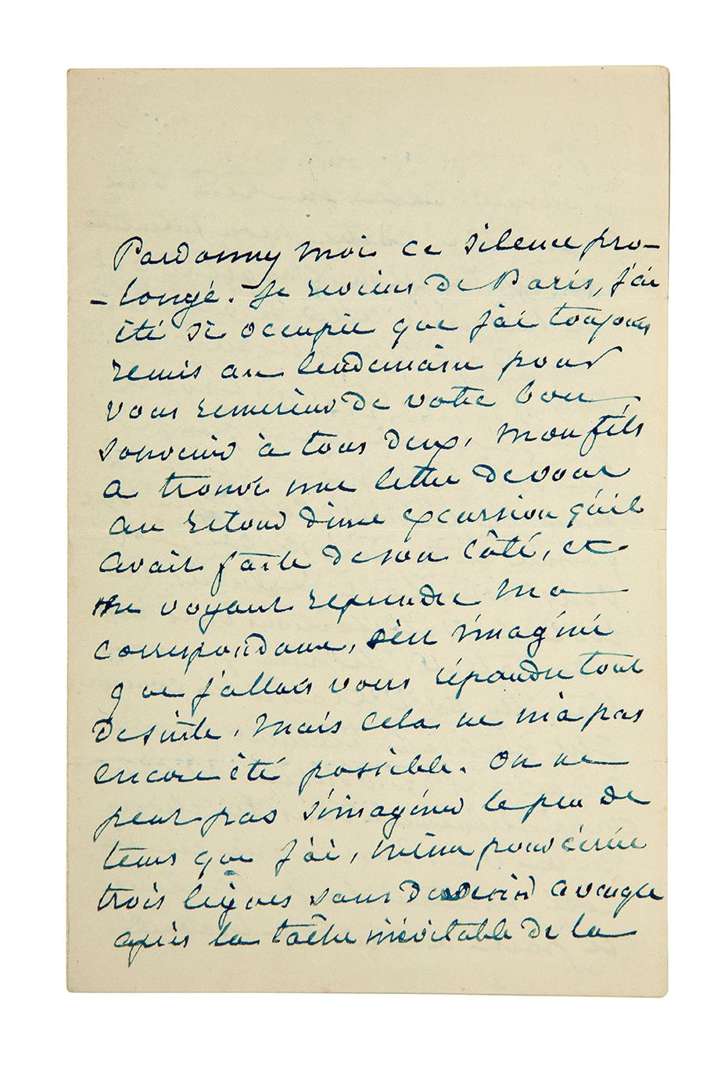 Pardonny moi ce silence pro-
-longé. Je reviens de Paris, j'ai
été si occupée que j'ai toujours
remis au lendemain pour
vous remercier de votre bon
souvenir à tous deux, mon fils
a trouvé une lettre de vous
au retour d'une excursion qu'il
avait faite de son côté, et
me voyant reprendre ma
correspondance, s'en imaginé
que j'allais vous répondre tout
de suite, mais cela ne m'a pas
encore été possible. On ne
peut pas s'imaginer le peu de
tems que j'ai, même pour écrire
trois lignes sans devenir aveugle
après la tâche inévitable de la